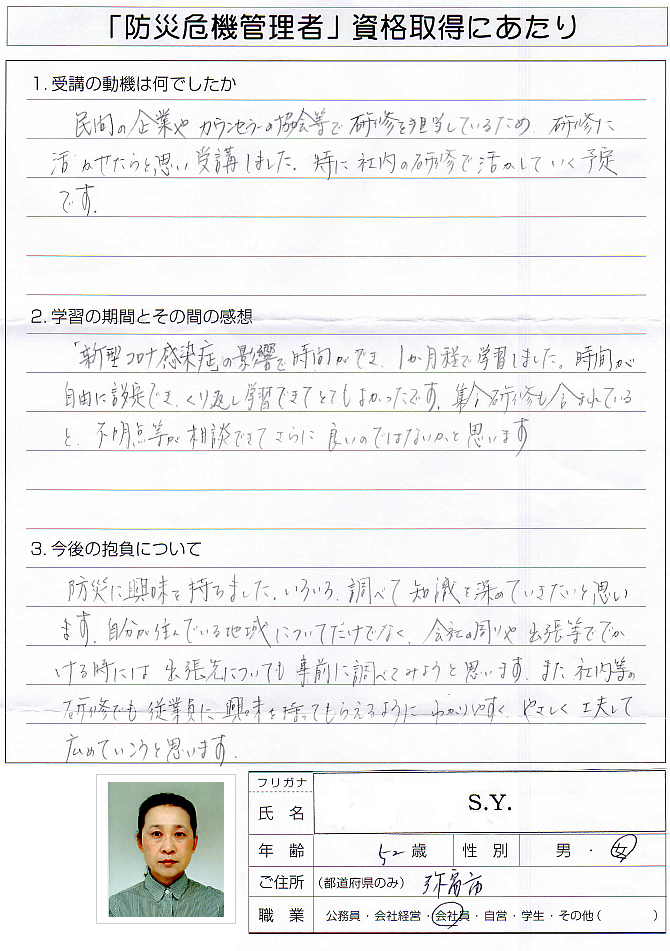 「防災危機管理者」資格取得にあたり
1. 受講の動機は何でしたか
民間の企業や カウンセラーの協会等で 研修を担当しているため、研修に
活かせたらと思い受講しました。特に 社内の研修で活かしていく予定
です。
2. 学習の期間とその間の感想
「新型コロナ感染症」の影響で時間ができ、1か月程で学習しました。時間が
自由に設定でき、くり返し学習できてとてもよかったです。集合研修も含まれている
と、不明点等が相談できてさらに良いのではないかと思います
3. 今後の抱負について
防災に興味を持ちました。いろいろ、調べて 知識を深めていきたいと思い
ます。自分が住んでいる地域についてだけでなく、会社の周りや 出張等ででか
ける時には 出張先についても事前に調べてみようと思います。また 社内等の
研修でも従業員に興味を持ってもらえるように わかりやすく、やさしく工夫して
広めていこうと思います。
フリガナ
氏 名 S.Y.
年 齢 52 歳 性 別 男 ・ 女
ご住所 (都道府県のみ) 弥富市
職 業 公務員・会社経営・会社員・自営・学生・その他( )